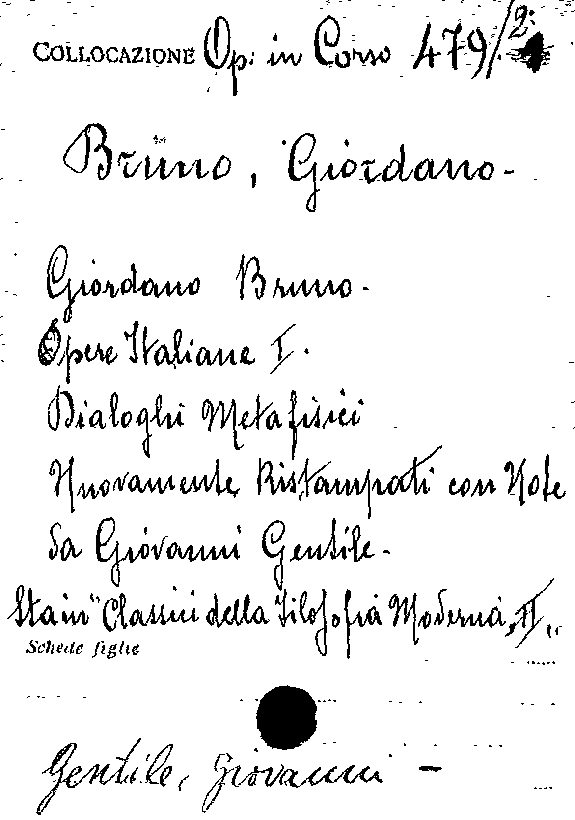 COLLOCAZIONE Op: in Corso 479/2:
Bruno, Giordano-
Giordano Bruno-
Opere Italiane I.
Dialoghi Metafisici
Nuovamente Ristampati con Note
da Giovanni Gentile-
Sta in "Classici della Filosofia Moderna, II"
Schede figlie
Gentile, Giovanni -